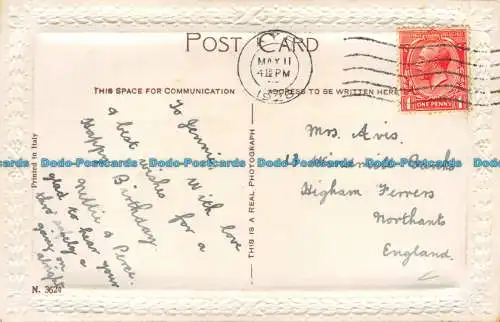 POST CARD
MAY 11
4 15 PM
ONE PENNY
THIS SPACE FOR COMMUNICATION
ADDRESS TO BE WRITTEN HERE
To Jennie
With love
& best wishes for a
Happy Birthday.
Nettie & Perce.
glad to hear your
going on
alright
THIS IS A REAL PHOTOGRAPH
Mrs. Avis.
13
Higham Ferrers
Northants
England.
Printed in Italy
N. 3624
Dodo-Postcards Dodo-Postcards Dodo-Postcards Dodo-Postcards